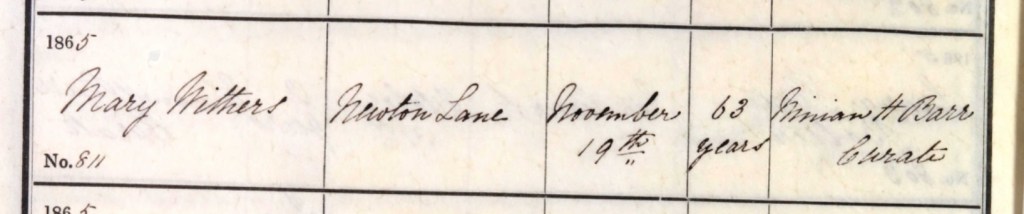 1865
Mary Withers
Newton Lane
November
19th
63
years
Ninian H Barr
Curate
No. 811
1865